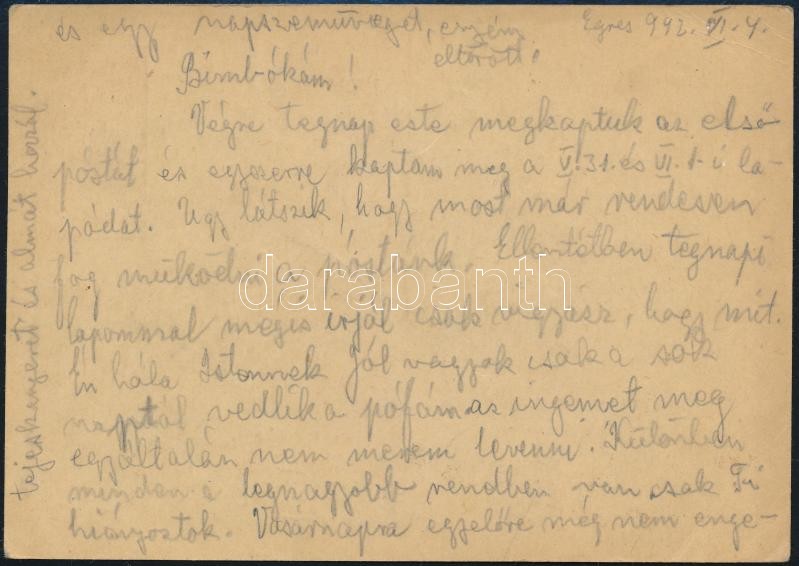 és egy napszemüveget, enyém
eltörött.
Egres 942. VI. 4.
Bimbókám!
Végre tegnap este megkaptuk az első
póstát és egyszerre kaptam meg a V. 31. és VI. 1-i la-
pódat. Ugy látszik, hogy most már rendesen
fog működni a póstánk. Ellentétben tegnapi
lapommal mégis írjál csak vigyázz, hogy mit.
Én hála Istennek jól vagyok csak a sok
naptól vedlik a pófám az ingemet meg
egyáltalán nem merem levenni. Különben
minden a legnagyobb rendben van csak Ti
hiányoztok. Vasárnapra egyelőre még nem enge-
tejeskenyeret és almát hozzál.
darabanth